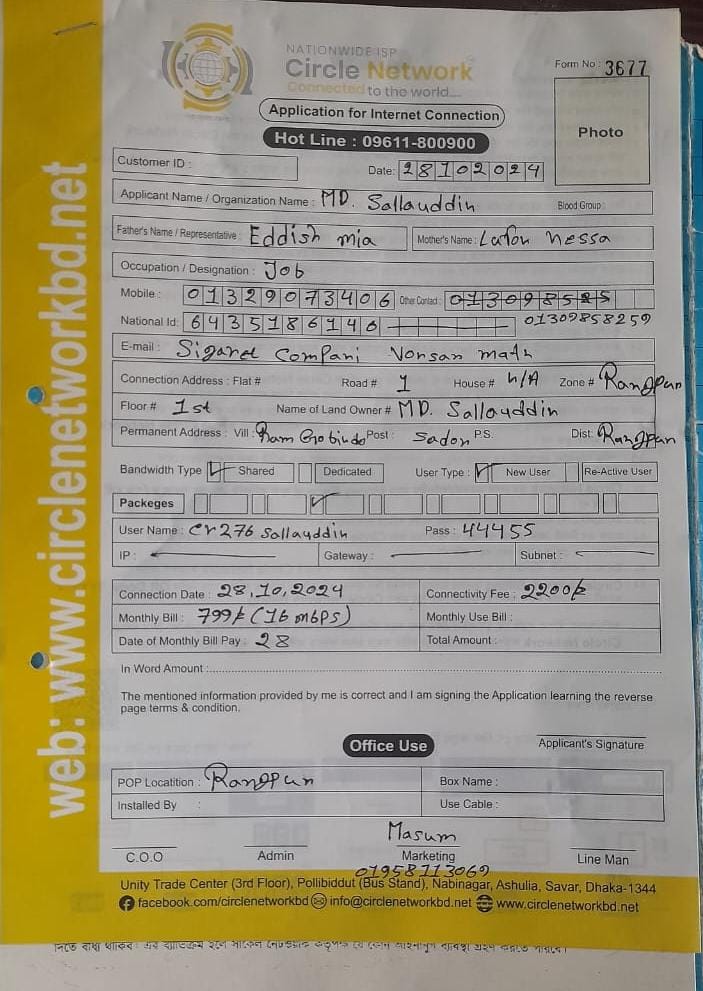 NATIONWIDE ISP
Circle Network
Connected to the world....
Form No : 3677
Application for Internet Connection
Hot Line : 09611-800900
Photo
Customer ID :
Date: 28102024
Applicant Name / Organization Name : MD. Sallauddin Blood Group :
Father's Name / Representative : Eddish mia Mother's Name : Lafon nessa
Occupation / Designation : Job
Mobile : 01329073406 Other Contact :
National Id: 6435186146 01309858259
E-mail : Sigaret Compani Vonsan math
Connection Address : Flat # Road # 1 House # N/A Zone # Rangpun
Floor # 1st Name of Land Owner # MD. Sallauddin
Permanent Address : Vill : Ram Gobindo Post : Sadon P.S. Dist: Rangpun
Bandwidth Type Shared Dedicated User Type : New User Re-Active User
Packeges
User Name : Cr276 Sallauddin Pass : 44455
IP : Gateway : Subnet :
Connection Date : 28,10,2024 Connectivity Fee : 2200/=
Monthly Bill : 799/= (16 mbps) Monthly Use Bill :
Date of Monthly Bill Pay : 28 Total Amount :
In Word Amount :
The mentioned information provided by me is correct and I am signing the Application learning the reverse
page terms & condition.
Office Use
Applicant's Signature
POP Locatition : Rangpun Box Name :
Installed By : Use Cable :
Masum
C.O.O Admin Marketing Line Man
01958113069
Unity Trade Center (3rd Floor), Pollibiddut (Bus Stand), Nabinagar, Ashulia, Savar, Dhaka-1344
facebook.com/circlenetworkbd info@circlenetworkbd.net www.circlenetworkbd.net
web: www.circlenetworkbd.net